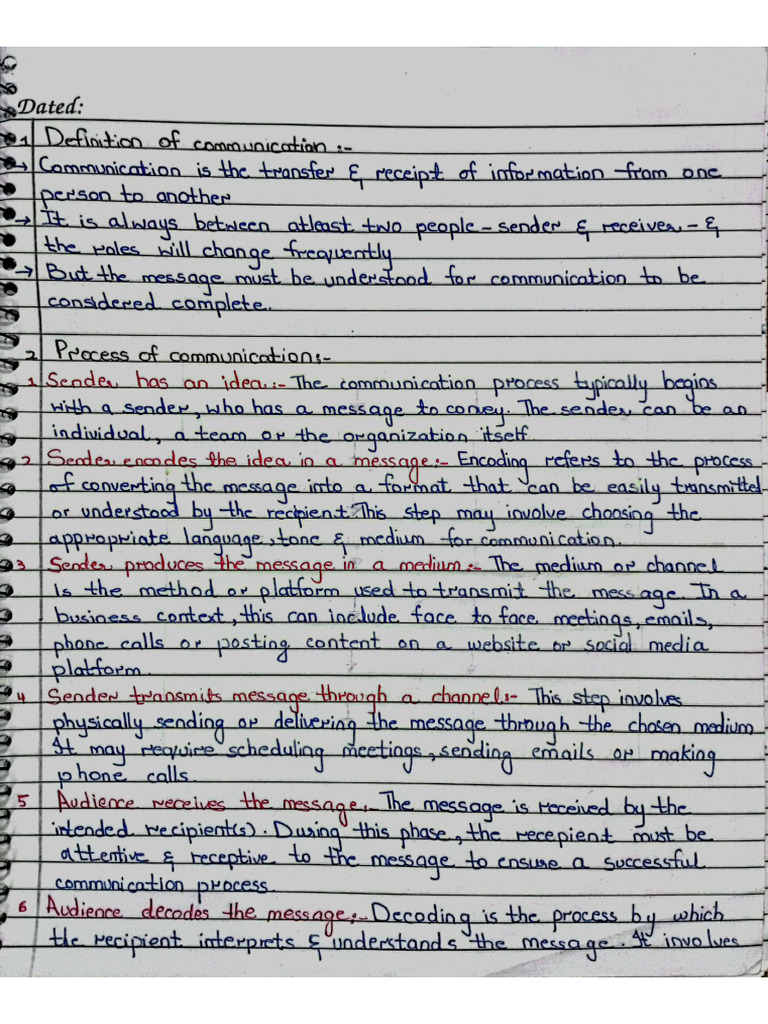 Dated:
1 Definition of communication :-
→ Communication is the transfer & receipt of information from one
person to another
→ It is always between atleast two people - sender & receiver - &
the roles will change frequently
→ But the message must be understood for communication to be
considered complete.
2 Process of communication:-
1 Sender has an idea:- The communication process typically begins
with a sender, who has a message to convey. The sender can be an
individual, a team or the organization itself.
2 Sender encodes the idea in a message:- Encoding refers to the process
of converting the message into a format that can be easily transmitted
or understood by the recipient. This step may involve choosing the
appropriate language, tone & medium for communication.
3 Sender produces the message in a medium:- The medium or channel
is the method or platform used to transmit the message. In a
business context, this can include face to face meetings, emails,
phone calls or posting content on a website or social media
platform.
4 Sender transmits message through a channel:- This step involves
physically sending or delivering the message through the chosen medium
It may require scheduling meetings, sending emails or making
phone calls.
5 Audience receives the message:- The message is received by the
intended recipient(s). During this phase, the recepient must be
attentive & receptive to the message to ensure a successful
communication process
6 Audience decodes the message:- Decoding is the process by which
the recipient interprets & understands the message. It involves